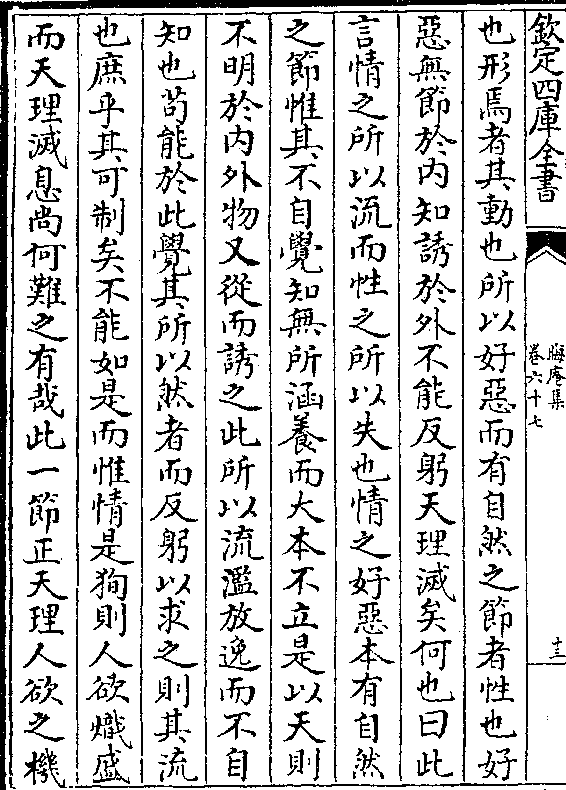 欽定四庫全書
晦庵集
卷六十七
十三
也形焉者其動也所以好惡而有自然之節者性也好
惡無節於内知誘於外不能反躬天理滅矣何也曰此
言情之所以流而性之所以失也情之好惡本有自然
之節惟其不自覺知無所涵養而大本不立是以天則
不明於内外物又從而誘之此所以流濫放逸而不自
知也苟能於此覺其所以然者而反躬以求之則其流
也庶乎其可制矣不能如是而惟情是狥則人欲熾盛
而天理滅息尚何難之有哉此一節正天理人欲之機